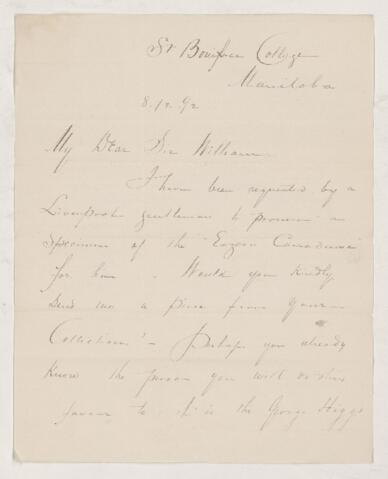 St Boniface College
Manitoba
8.12.92
My Dear Sir William
I have been requested by a
Liverpool gentleman to procure a
specimen of the "Eozoon Canadense"
for him. Would you kindly
send me a piece from your
Collections? - Perhaps you already
know the person you will do this
favour to. It is the George Higgs